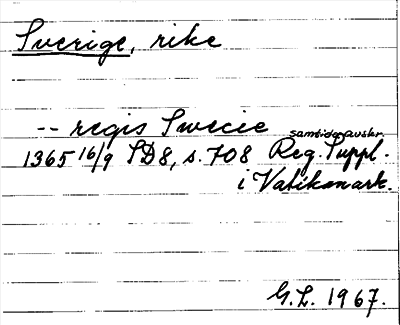 Sverige, rike
-- regis Swecie
samtida avskr.
1365 16/9 SD8, s. 708 Reg. Suppl.
i Vatikanark.
G.L. 1967.